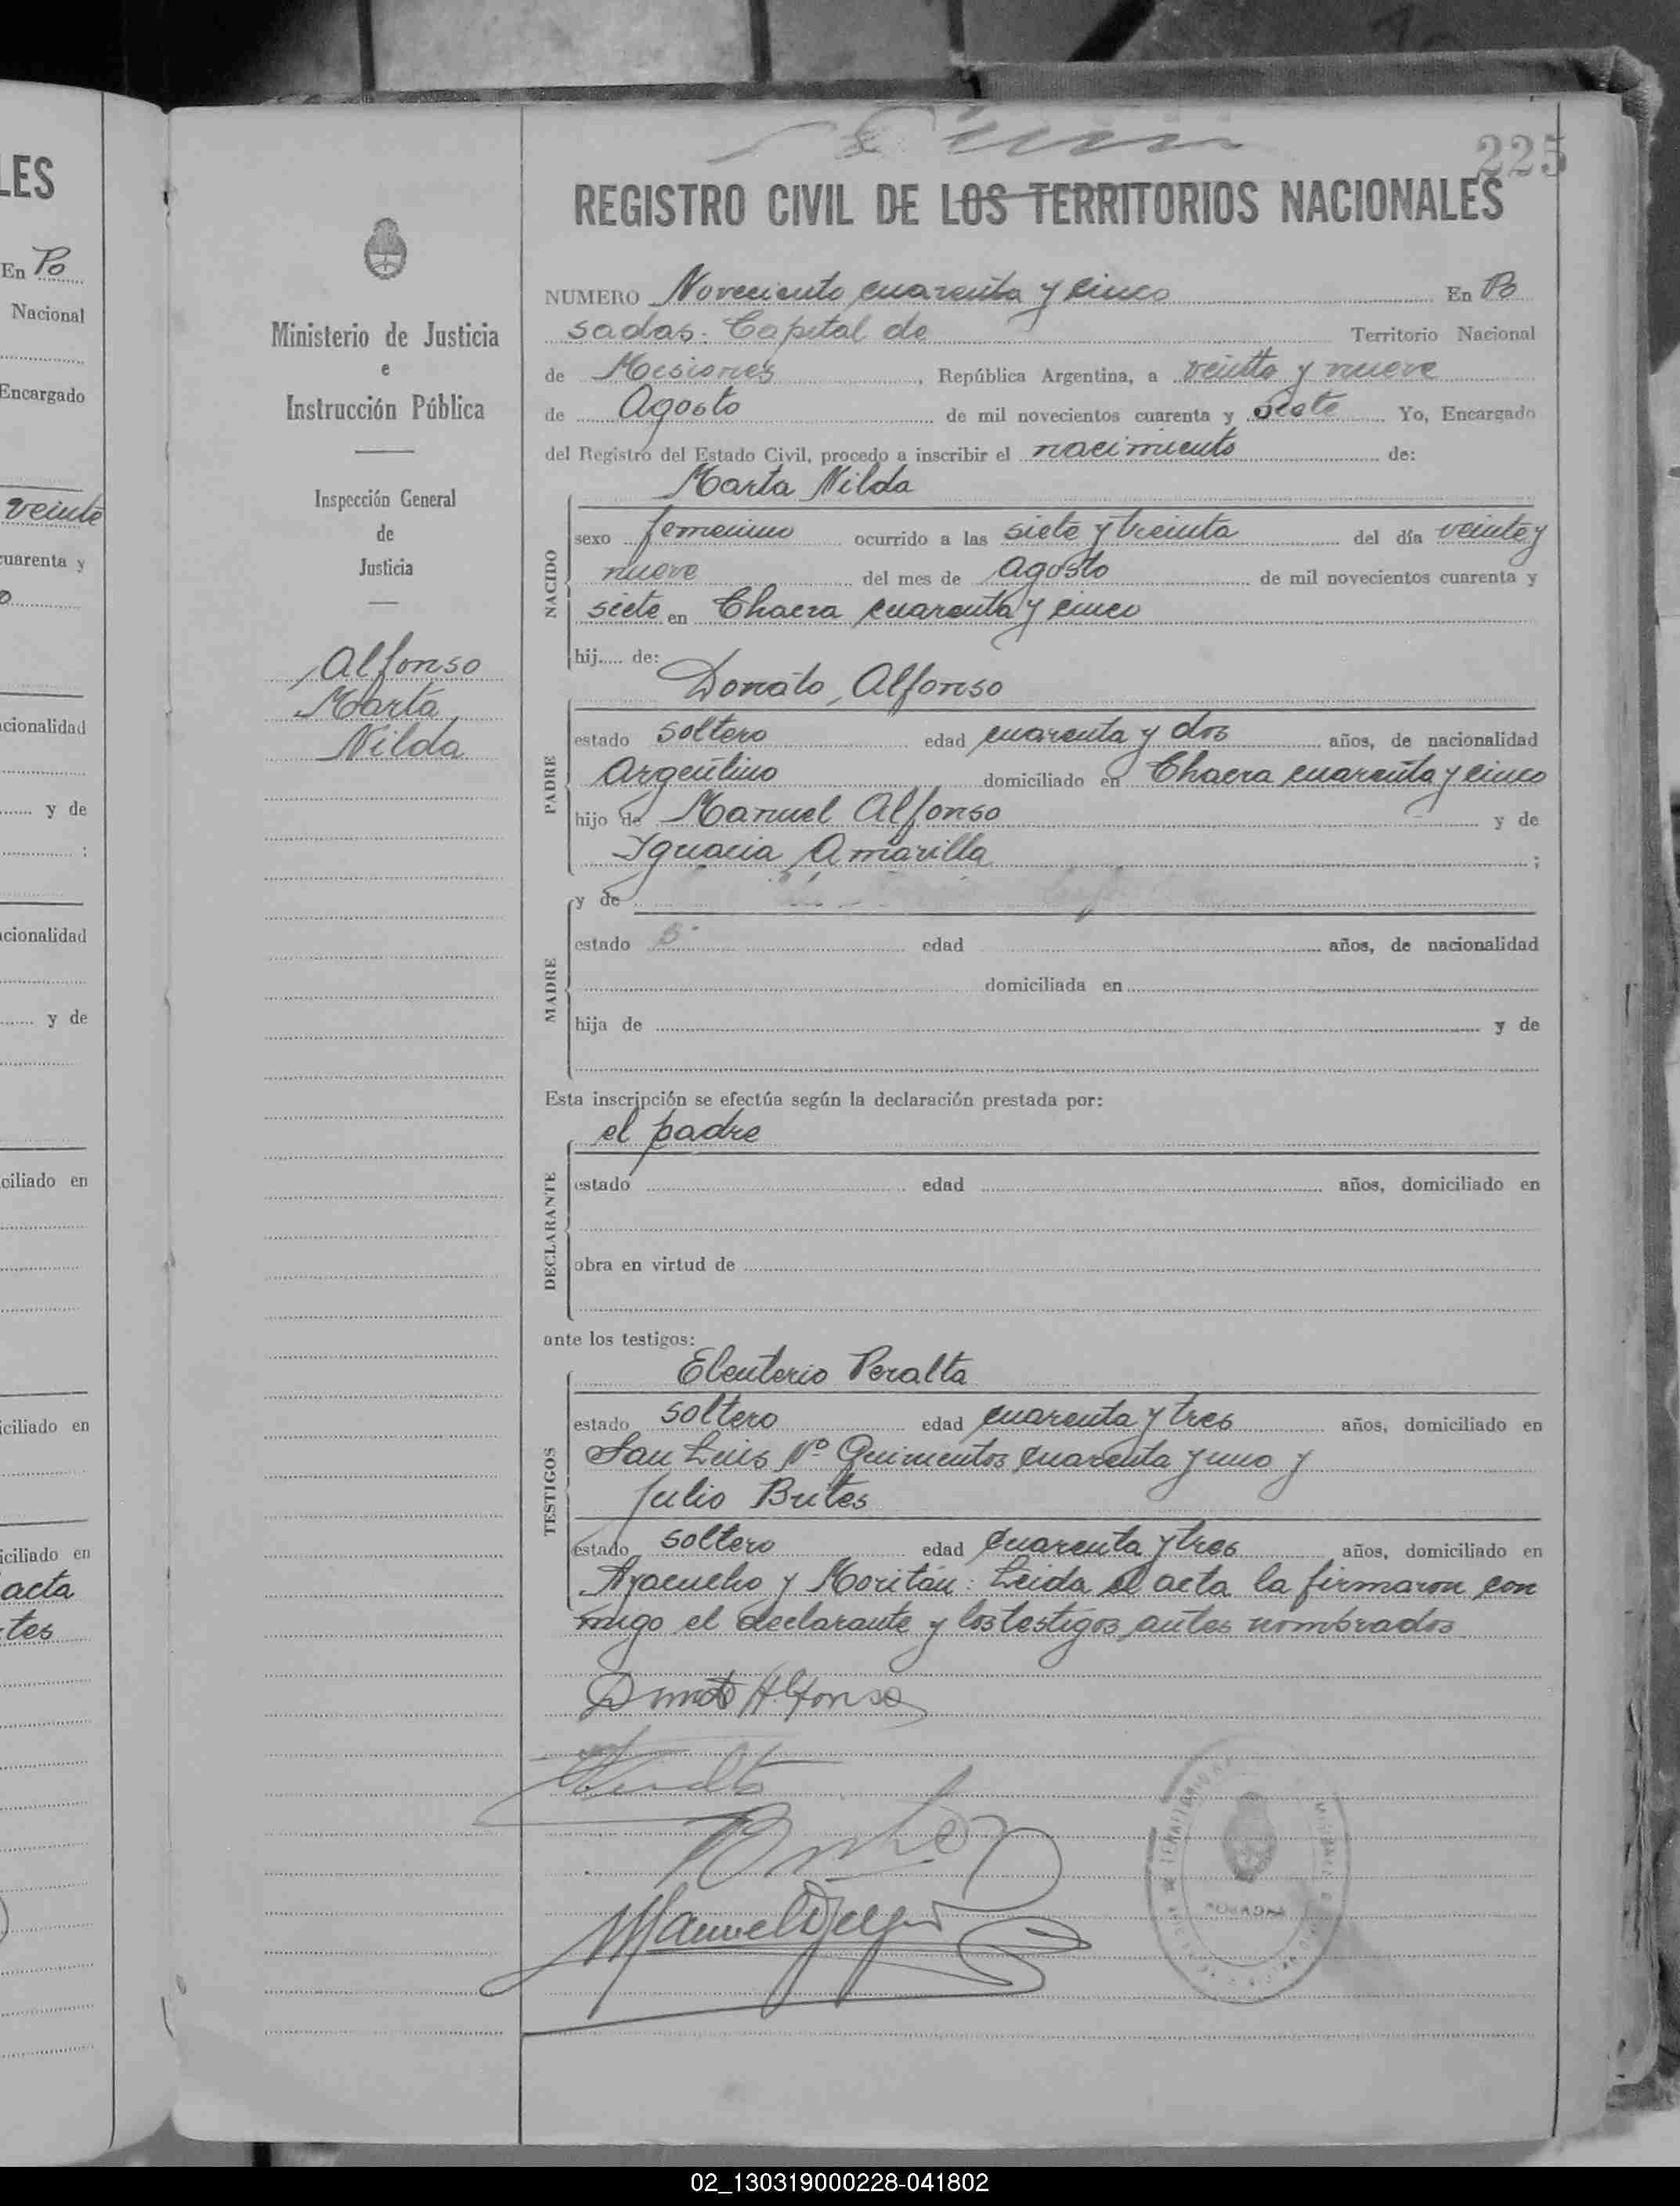 LES
En Po
Nacional
Encargado
veinte
cuarenta y
o
cionalidad
y de
;
cionalidad
y de
ciliado en
iciliado en
iciliado en
acta
tes
225
REGISTRO CIVIL DE LOS TERRITORIOS NACIONALES
Ministerio de Justicia
e
Instrucción Pública
Inspección General
de
Justicia
Alfonso
Marta
Nilda
NUMERO Noveciento cuarenta y cinco En Po
sadas. Capital de Territorio Nacional
de Misiones, República Argentina, a veinte y nueve
de Agosto de mil novecientos cuarenta y siete Yo, Encargado
del Registro del Estado Civil, procedo a inscribir el nacimiento de:
NACIDO
Marta Nilda
sexo femenino ocurrido a las siete y treinta del día veinte y
nueve del mes de agosto de mil novecientos cuarenta y
siete en Chacra cuarenta y cinco
hij..... de:
PADRE
Donato Alfonso
estado soltero edad cuarenta y dos años, de nacionalidad
Argentino domiciliado en Chacra cuarenta y cinco
hijo de Manuel Alfonso y de
Ignacia Amarilla ;
MADRE
y de
estado edad años, de nacionalidad
domiciliada en
hija de y de
Esta inscripción se efectúa según la declaración prestada por:
DECLARANTE
el padre
estado edad años, domiciliado en
obra en virtud de
ante los testigos:
TESTIGOS
Eleuterio Peralta
estado soltero edad cuarenta y tres años, domiciliado en
San Luis Nº Quinientos cuarenta y uno y
Julio Brites
estado soltero edad cuarenta y tres años, domiciliado en
Ayacucho y Moritán: Leida el acta la firmaron con
migo el declarante y los testigos antes nombrados
Donato Alfonso
POSADAS
02_130319000228-041802